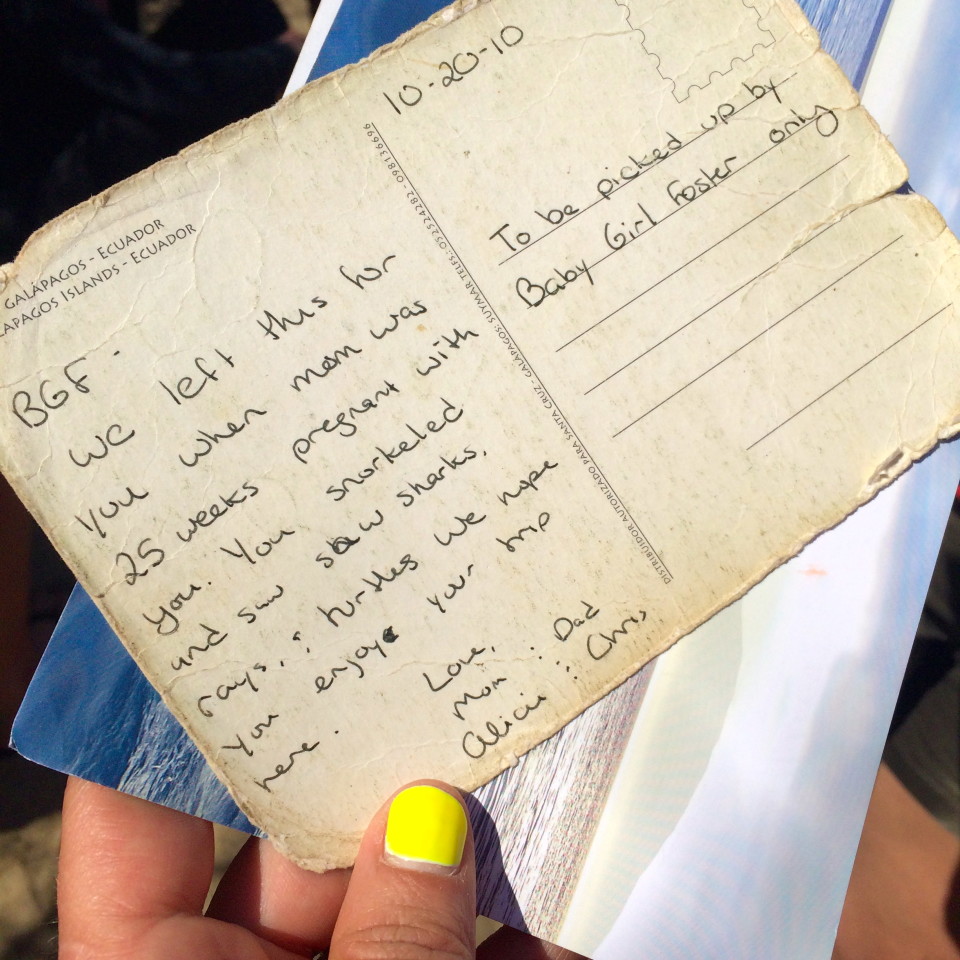 GALÁPAGOS - ECUADOR
LAPAGOS ISLANDS - ECUADOR
BGF -
We left this for
you when mom was
25 weeks pregnant with
you. You snorkeled
and saw saw sharks,
rays, & turtles We hope
you enjoy your trip
here.
Love,
Mom & Dad
Alicia & Chris
DISTRIBUIDOR AUTORIZADO PARA SANTA CRUZ - GALÁPAGOS: SUYMAR TELFS.: 052524282 - 098136696
10-20-10
To be picked up by
Baby Girl Foster only